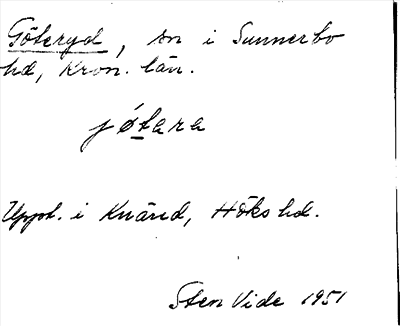 Göteryd, sn i Sunnerbo
hd, Kron. län.
jøtara
Uppt. i Knäred, Höks hd.
Sten Vide 1951